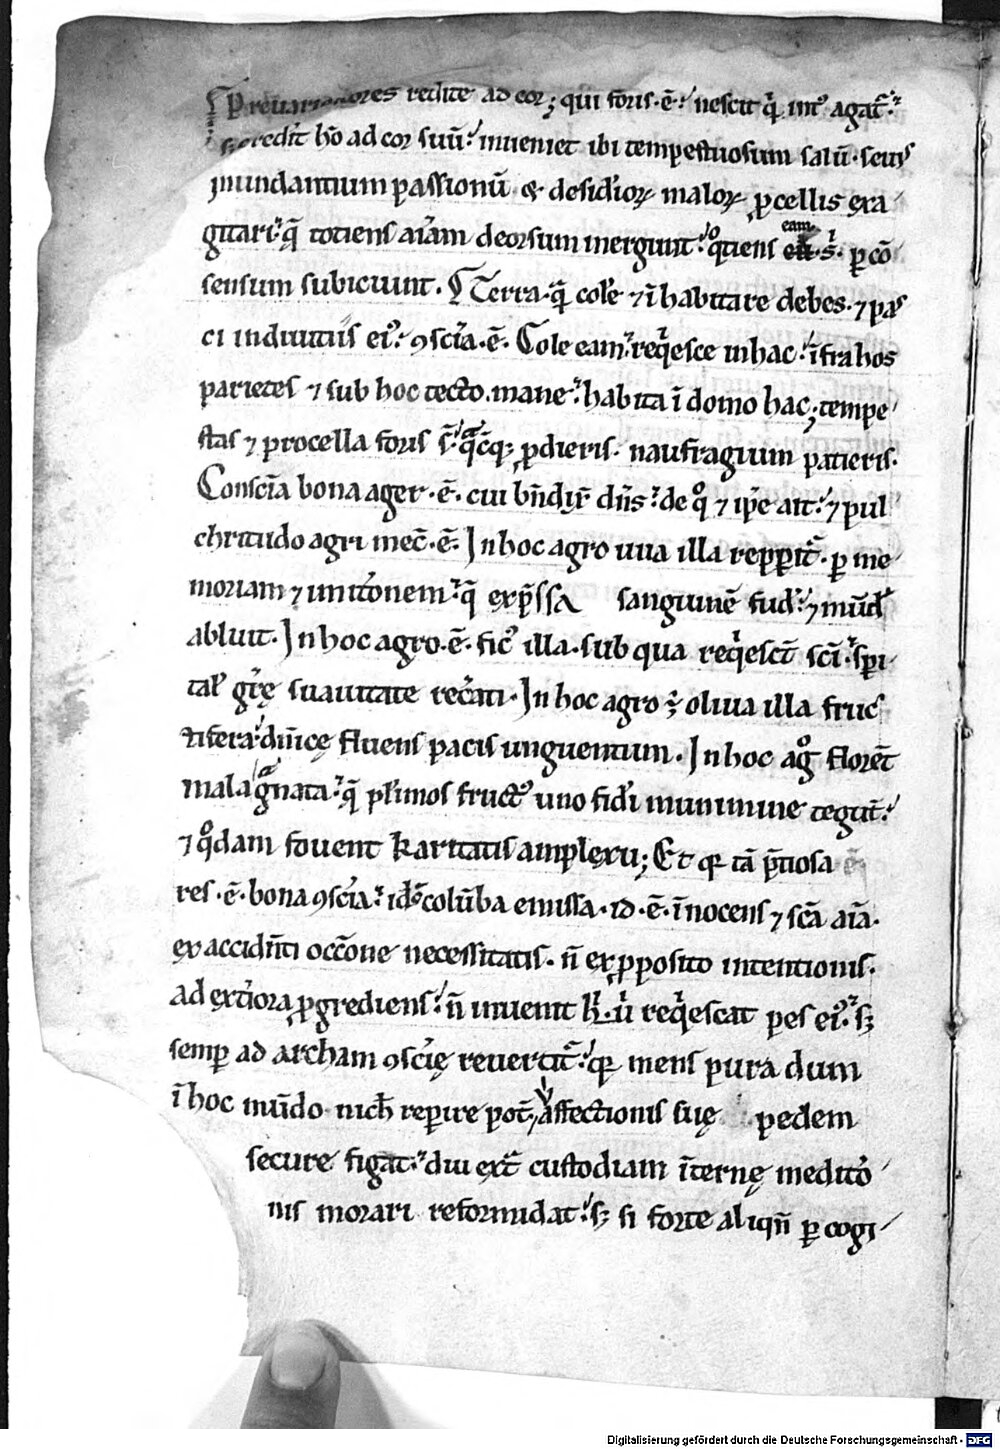 P̄reuaricatores redite ad cor; qui foris·ē· nescit q̇ int᷒ agat᷑.
redit hō ad cor suū: inueniet ibi tempestuosum salū·seuis
inundantium passionū & desidioꝝ maloꝝ ꝓcellis exa
gitari· q̄ totiens aīam deorsum mergunt· quotiens eam s̄· ꝑ cō
sensum subiciunt. Terra·quā cole᷑ ⁊ īhabitare debes·⁊ pas
ci indiuitiis ei᷒· ꝯsciā·ē· Cole eam· reqͥesce in hac· īfra hos
parietes ⁊ sub hoc tecto·mane·habita ī domo hac; tempe
stas ⁊ procella foris s̄· qͣcūqꝫ ꝓdieris· naufragium patieris.
Consciā bona ager·ē· cui bn̄dix̄ dn̄s· de qͦ ⁊ ip̄e ait·⁊ pul
chritudo agri mec̄·ē· In hoc agro uua illa repꝑit᷑· ꝑ me
moriam ⁊ imitōnem· q̄ exp̄ssa sanguinē fud᷑·⁊ mūd᷒
abluit· In hoc agro·ē· fic᷒ illa·sub qua reqͥescūt sc̄i·spi
tal᷑ gr̄ę suauitate rec᷑ati· In hoc agro ÷ oliua illa fruc
tifera·diuīcę fluens pacis unguentum· In hoc agͦ florēt
mala gͣnata· q̄ pl᷑imos fruct᷒ uno fidi munimine tegūt·
⁊ qͦdam fouent karitatis amplexu; Et qꝛ tā p̄tiosa
res·ē· bona ꝯsciā· idͦ colūba emissa·id·ē· īnocens ⁊ sc̄a aīa·
ex accidn̄ti occōne necessitatis· n̄ ex ꝓposito intentionis·
ad extiora ꝓgrediens· n̄ inuenit h᷑· uͥ reqͥescat pes ei᷒·sꝫ
semꝑ ad archam ꝯscię reuertit᷑· qꝛ mens pura dum
ī hoc mūdo nich̄ reꝑire pot̄, affectionis suę pedem
secure figat· diu ext᷑ custodiam īternę meditō
nis morari reformidat· sꝫ si forte aliqn̄ ꝑ cogi
Digitalisierung gefördert durch die Deutsche Forschungsgemeinschaft - DFG